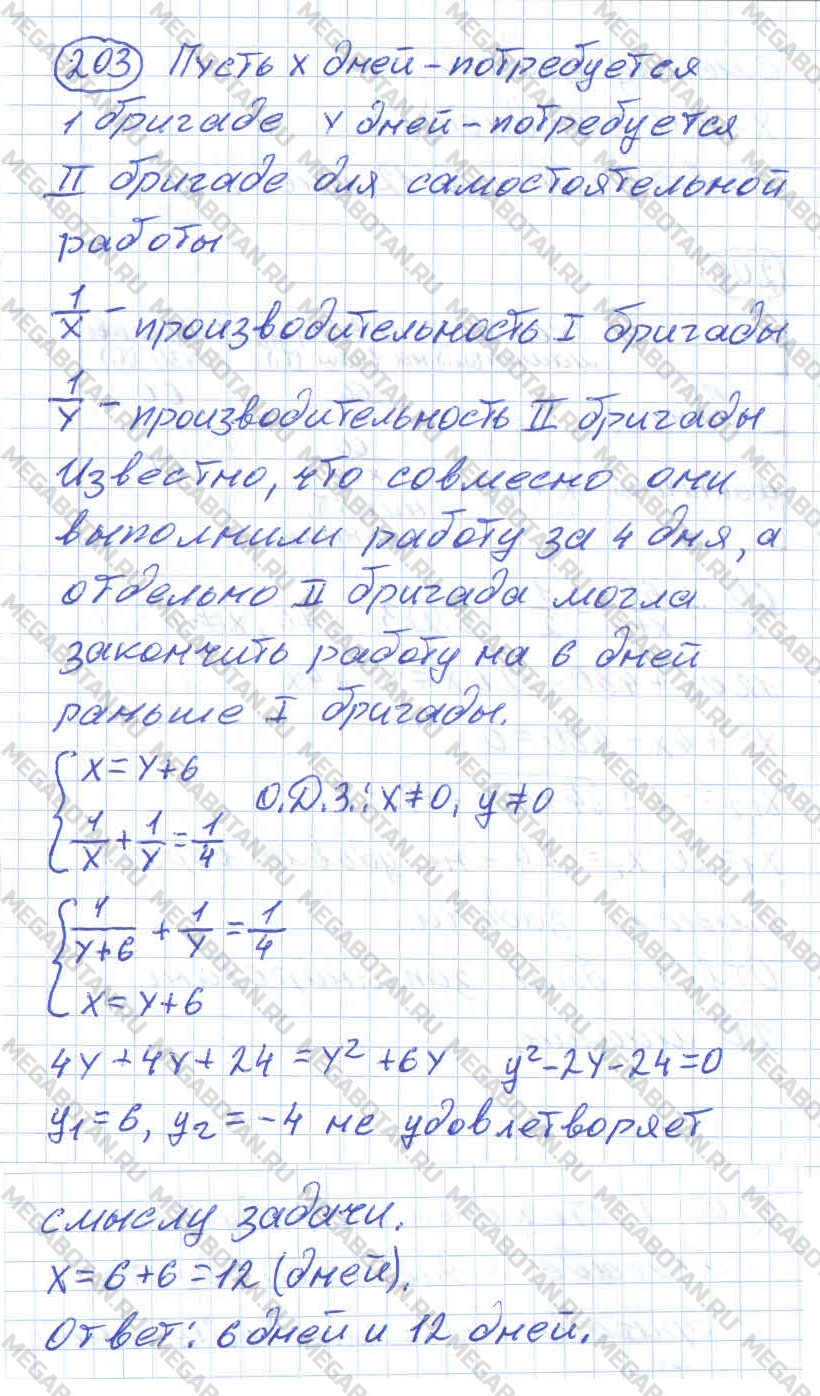 203 Пусть x дней – потребуется
1 бригаде y дней – потребуется
II бригаде для самостоятельной
работы
1/x – производительность I бригады
1/y – производительность II бригады
Известно, что совмесно они
выполнили работу за 4 дня, а
отдельно II бригада могла
закончить работу на 6 дней
раньше I бригады.
{ x = y + 6
1/x + 1/y = 1/4 О.Д.З.: x ≠ 0, y ≠ 0
{ 1/(y+6) + 1/y = 1/4
x = y + 6
4y + 4y + 24 = y² + 6y y² - 2y - 24 = 0
y₁ = 6, y₂ = -4 не удовлетворяет
смыслу задачи.
x = 6 + 6 = 12 (дней).
Ответ: 6 дней и 12 дней.
MEGABOTAN.RU